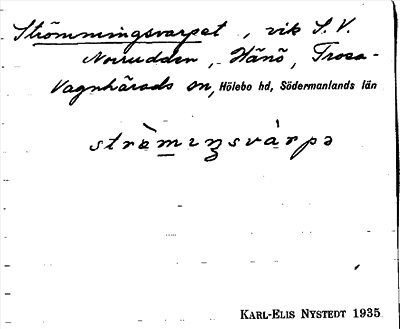 Strömmingsvarpet, vik S.V.
Norrudden, Hånö, Trosa-
Vagnhärads sn, Hölebo hd, Södermanlands län
strö̀mɩŋsvàrpə
KARL-ELIS NYSTEDT 1935